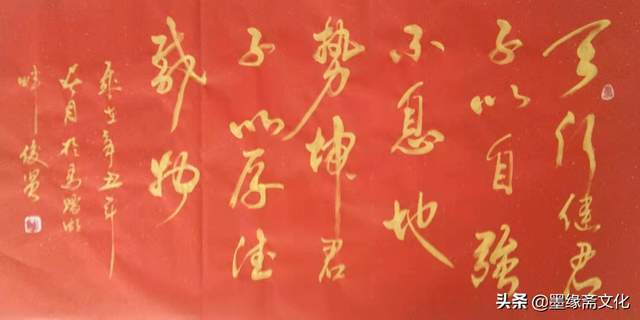 天行健君
子以自強
不息地
勢坤君
子以厚德
載物
歲在辛丑年
月於馬踏湖
畔 俊
头条 @墨缘斋文化